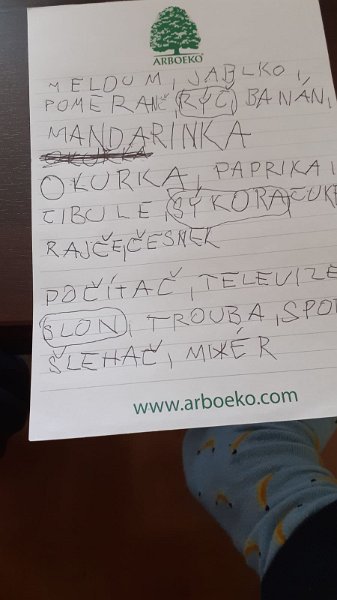 ARBOEKO®
MELOUM, JABLKO,
POMERANČ, RÝČ, BANÁN,
MANDARINKA
OKURKA, PAPRIKA,
CIBULE, SÝKORA, CUK
RAJČE, ČESNEK
POČÍTAČ, TELEVIZE
SLON, TROUBA, SPO
ŠLEHAČ, MIXÉR
www.arboeko.com